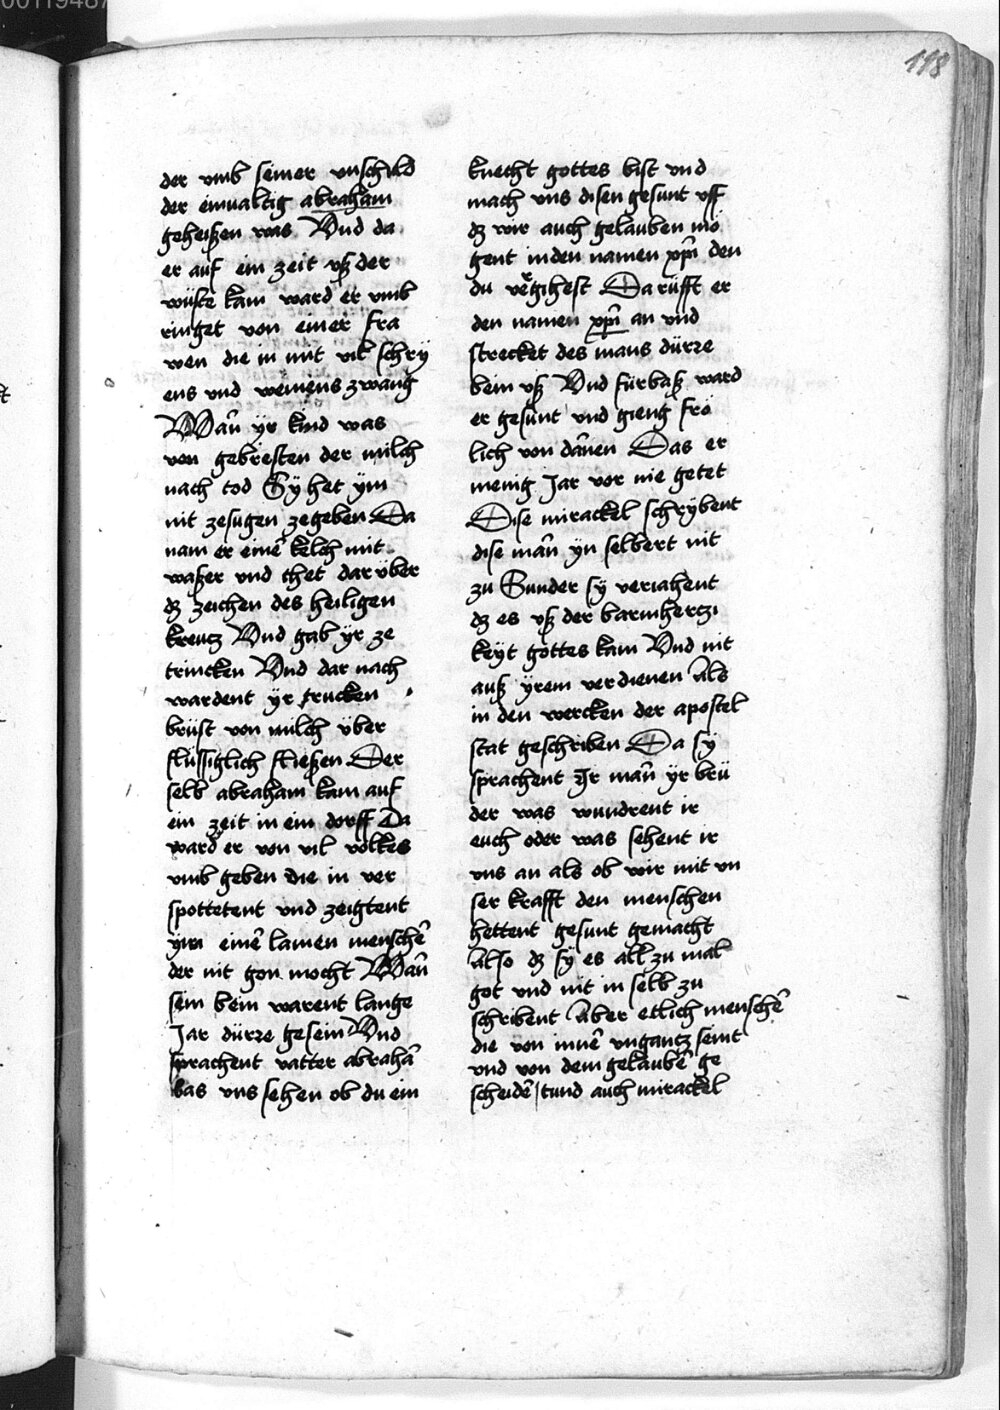 118
der vmb seiner vnschuld
der einualtig abraham
geheißen was Vnd da
er auf ein zeit vß der
wüste kam ward er vmb
ringet von einer fra
wen die in mit vil schry
ens vnd weinens zwang
Wan̄ yr kind was
von gebresten der milch
nach tod Sy het ÿm
nit zesugen zegeben Da
nam er einē kelch mit
waßer vnd thet dar vber
dz zeichen des heiligen
kreutz Vnd gab ÿr ze
trincken Vnd dar nach
wardent ÿr trucken
brüst von milch über
flüssiglich fließen Der
selb abraham kam auf
ein zeit in ein dorff Da
ward er von vil volkes
vmb geben die in ver
spottetent vnd zeigtent
ÿm einē lamen menschē
der nit gon mocht Wan̄
sein bein warent lange
Jar dürre gesein Vnd
sprachent vatter abrahā
las vns sehen ob du ein
knecht gottes bist vnd
mach vns disen gesunt vff
dz wir auch gelauben mö
gent in den namen xp̄i den
du vergihest Da rüfft er
den namen xp̄i an vnd
strecket des mans dürre
bein vß Vnd fürbaß ward
er gesunt vnd gieng frö
lich von dān̄en Das er
menig Jar vor nie getet
Dise mirackel schrÿbent
dise man̄ ÿn selbert nit
zu Sunder sy veriahent
dz es vß der barmhertzi
keÿt gottes kam Vnd nit
auß ÿrem verdienen Als
in den wercken der apostel
stat geschriben Da sÿ
sprachent Ir man̄ ÿr brü
der was wundrent ir
euch oder was sehent ir
vns an als ob wir mit vn
ser krafft den menschen
hettent gesunt gemacht
Also dz sÿ es all zu mal
got vnd nit in selb zu
schribent Aber etlich menschē
die von innē vngantz seint
vnd von dem gelaubē ge
scheidē tund auch mirackel